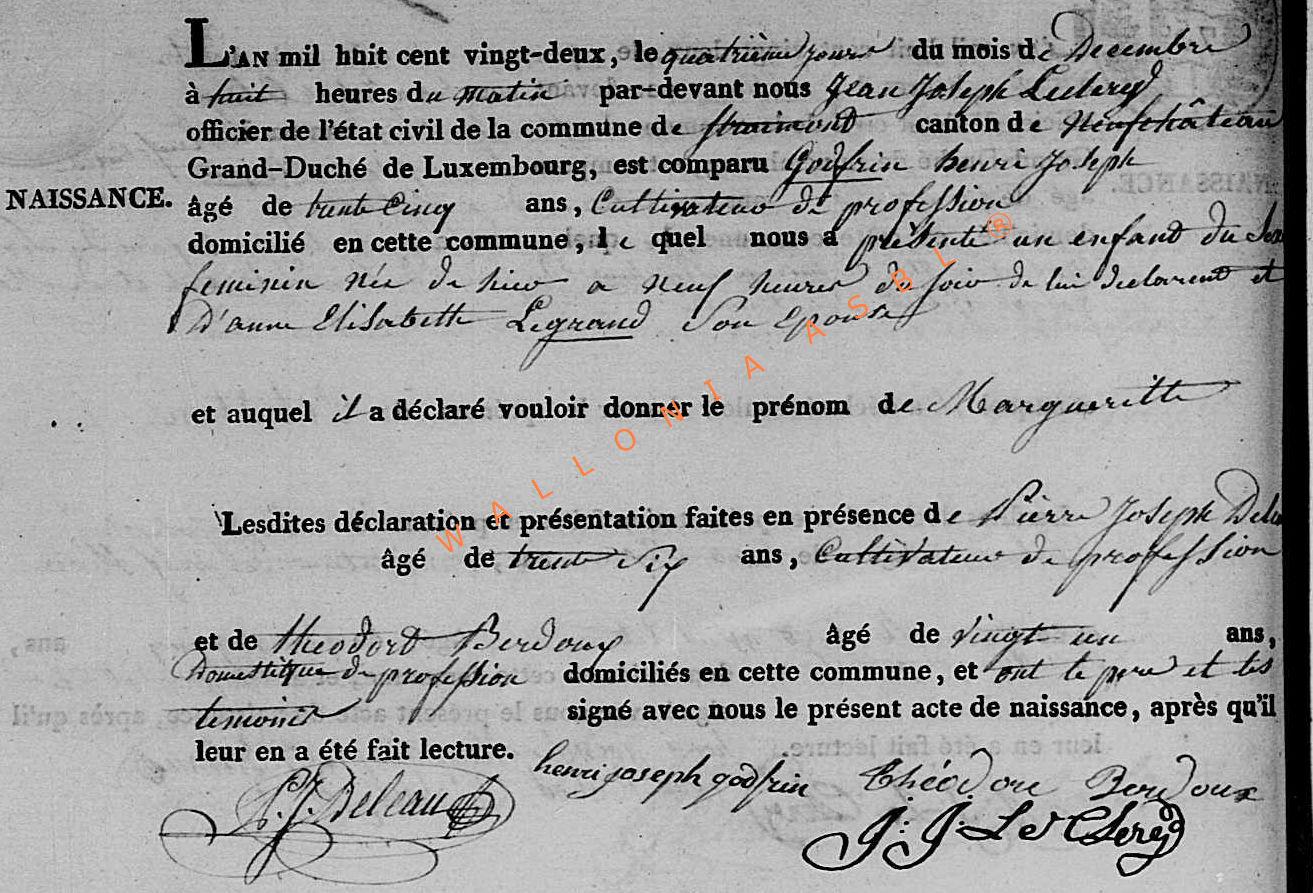 L'AN mil huit cent vingt-deux, le quatrième jour du mois de Decembre
à huit heures du matin par-devant nous Jean Joseph Leclerq
officier de l'état civil de la commune de Straimont canton de Neufchâteau
Grand-Duché de Luxembourg, est comparu Godfrin henri Joseph
NAISSANCE. âgé de trente Cinq ans, Cultivateur de profession
domicilié en cette commune, le quel nous a présenté un enfant du Sex
feminin née de hier a neuf heures du soir de lui declarent et
D'anne Elisabeth Legrand Son Epouse
et auquel il a déclaré vouloir donner le prénom de Margueritte
Lesdites déclaration et présentation faites en présence de Pierre Joseph
âgé de trente Six ans, Cultivateur de profession
et de theodord Berdoux âgé de vingt un ans,
Domestique de profession domiciliés en cette commune, et ont le pere et les
temoins signé avec nous le présent acte de naissance, après qu'il
leur en a été fait lecture.
P. J. Deleau henri joseph godfrin Théodore Berdoux
J: J. Le Clerq
WALLONIA ASBL ®